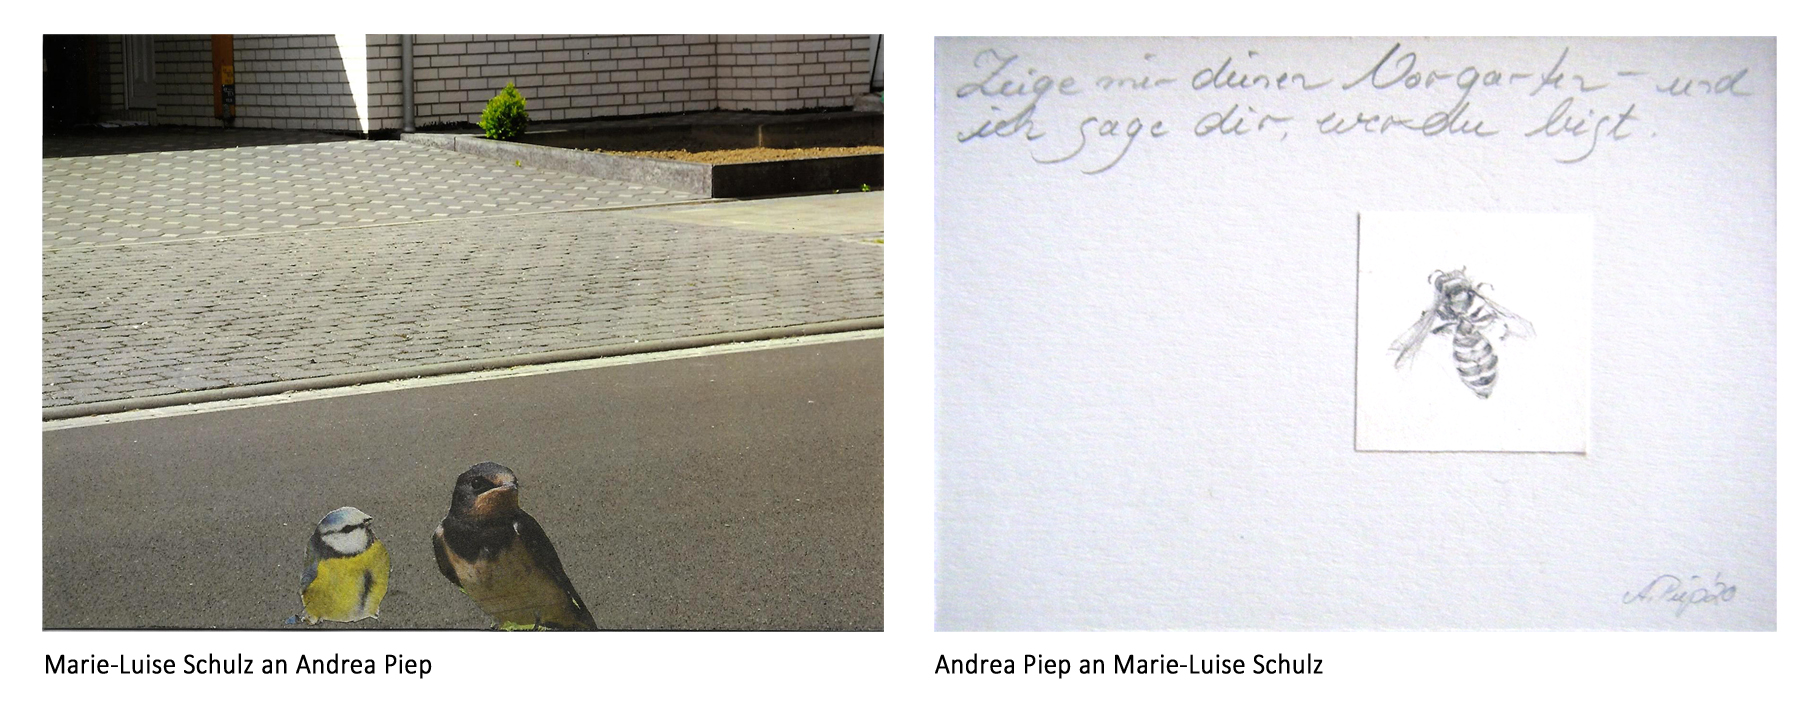 Zeige mir deinen Vorgarten – und
ich sage dir, wer du bist.
A. Piep '20
Marie-Luise Schulz an Andrea Piep
Andrea Piep an Marie-Luise Schulz